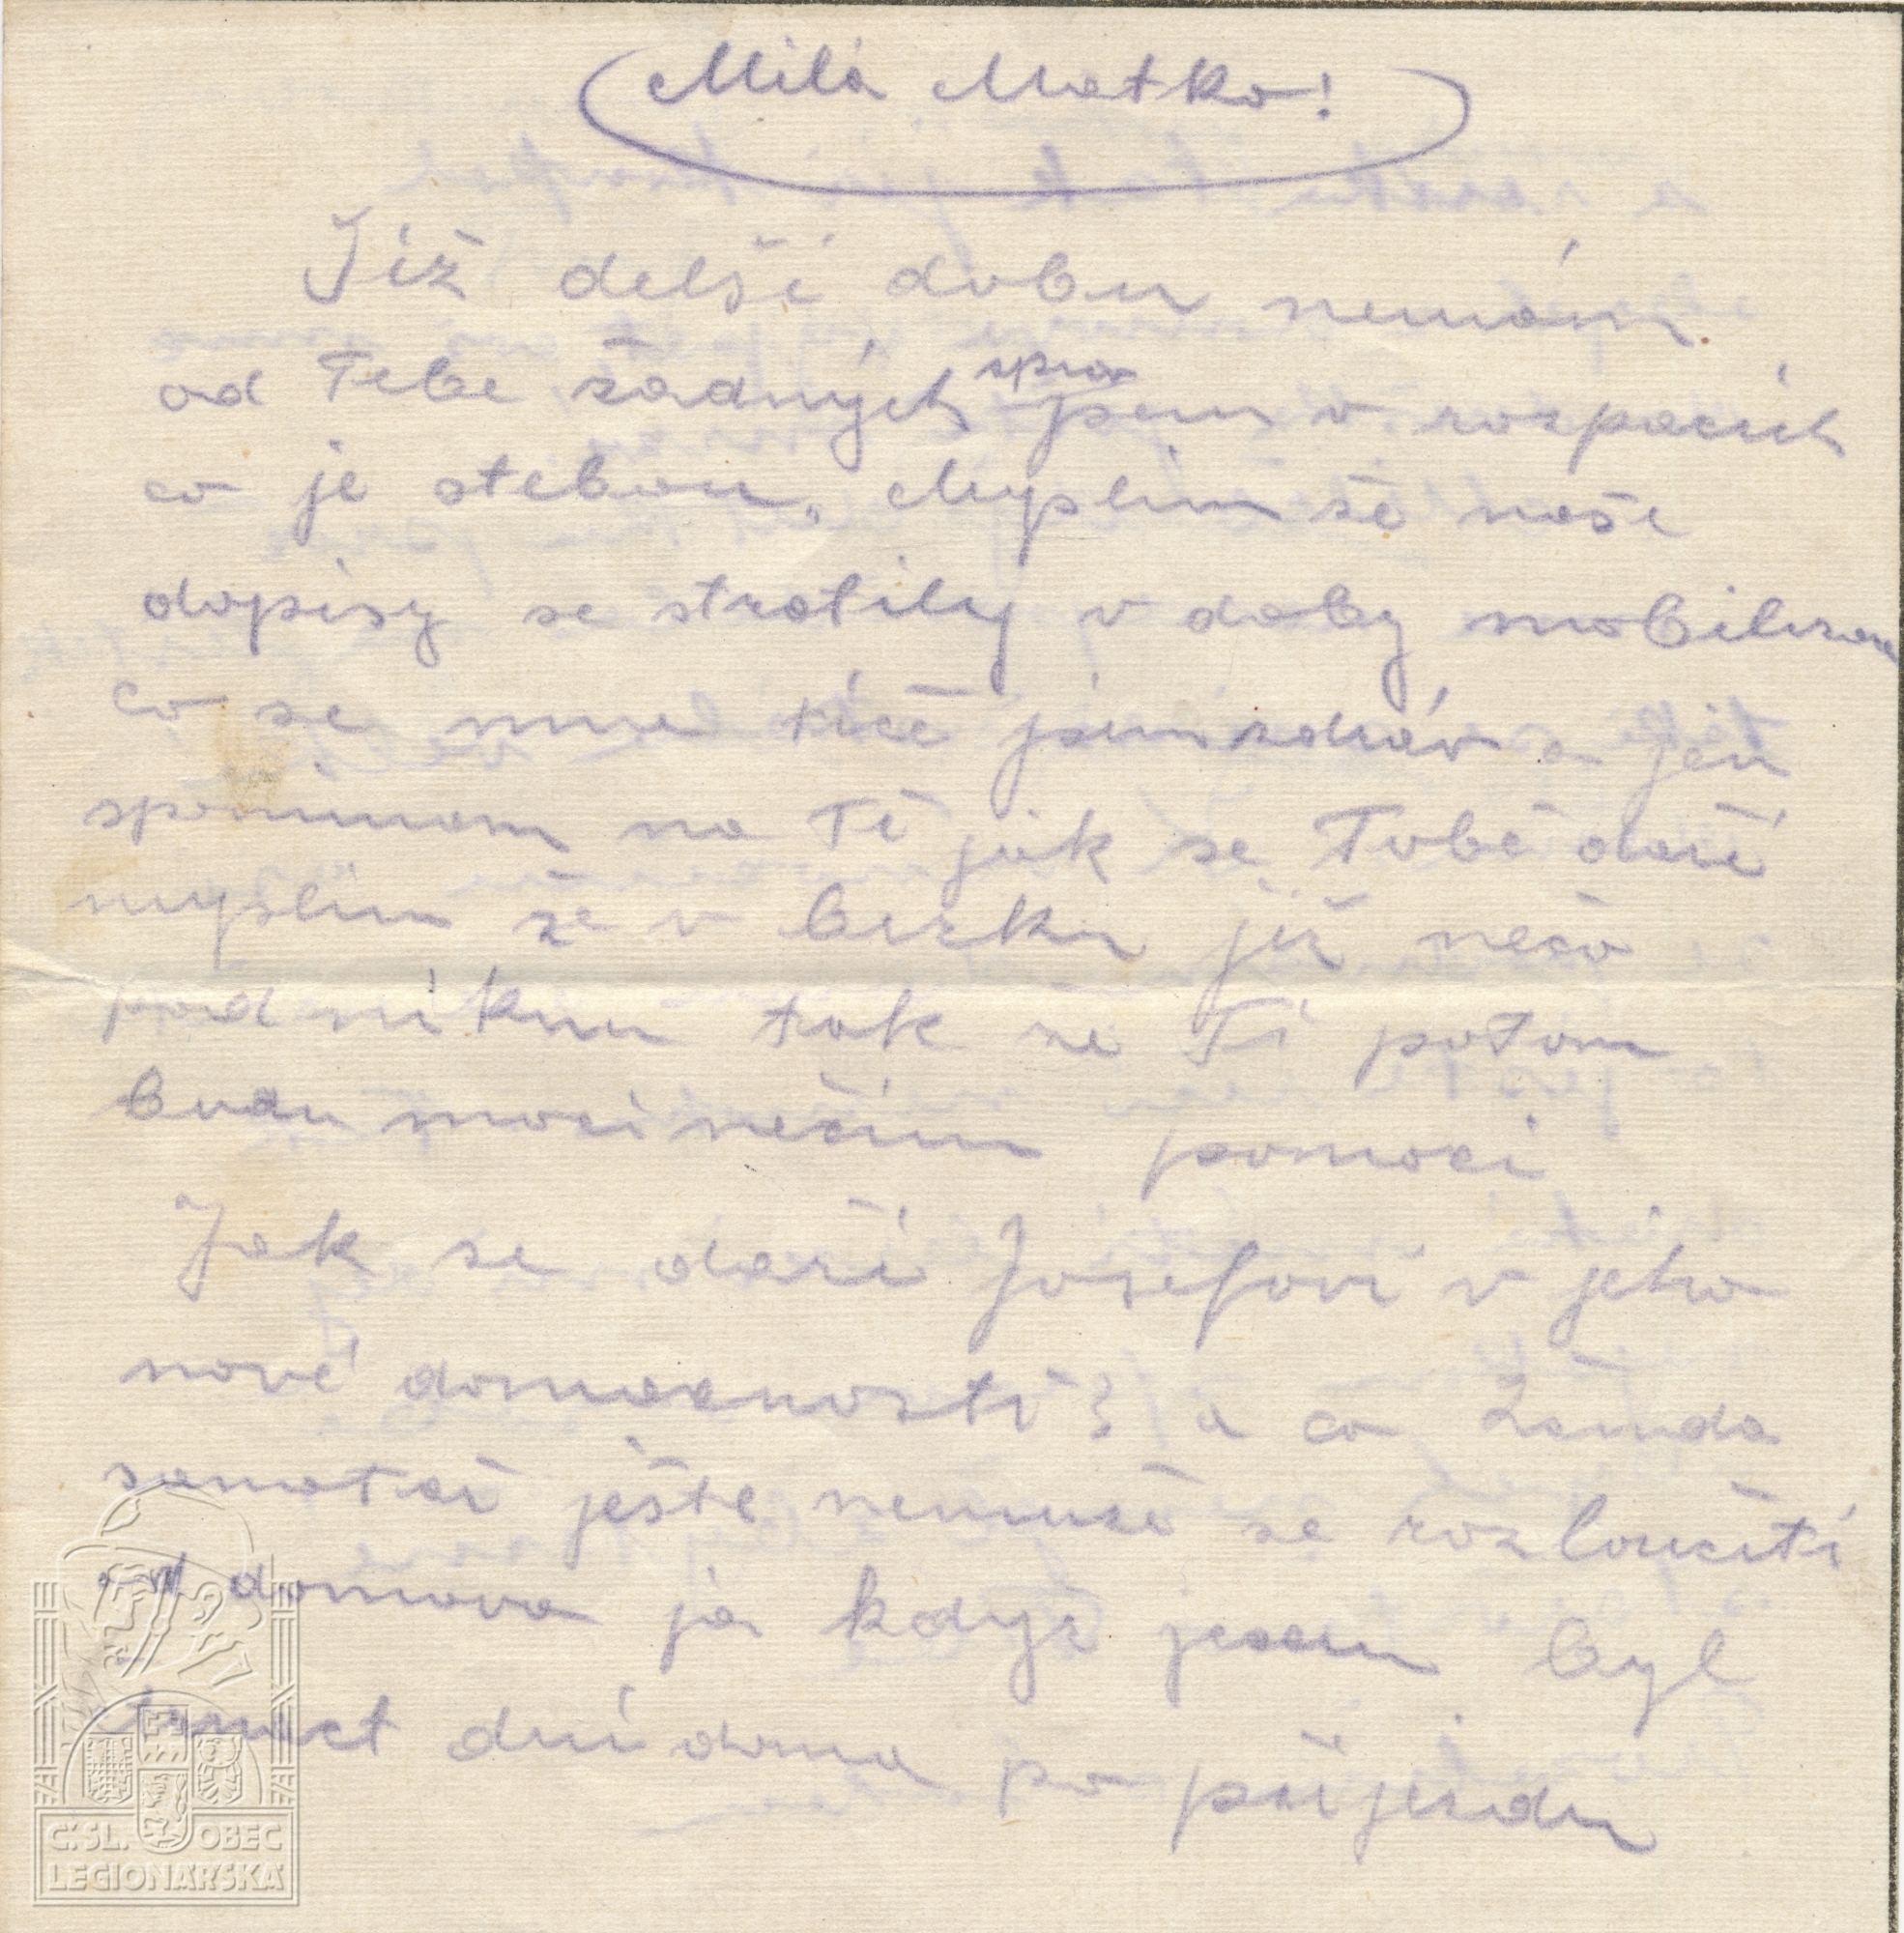 Milá Matko!
Již delší dobu nemám
od Tebe žádných zpráv jsem v rozpacích
co je stebou. Myslim že naše
dopisy se stratily v doby mobilizace
Co se mne tíče jsem zdráv a jen
spominam na Tě jak se Tobě daří
myslim že v brzku již něco
podniknu tak že Ti potom
budu moci nečim pomoci
Jak se daří Josefovi v jeho
nové domacnosti? a co
samotař ještě nemuže se rozloučiti
od domova já když jesem byl
dní doma po příjezdu
Č. SL. OBEC
LEGIONÁŘSKÁ